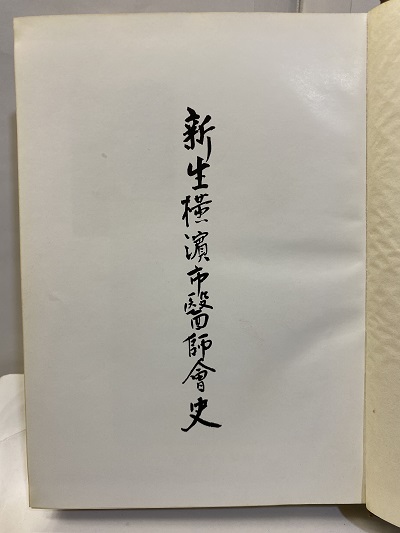 新生横濱市醫師會史